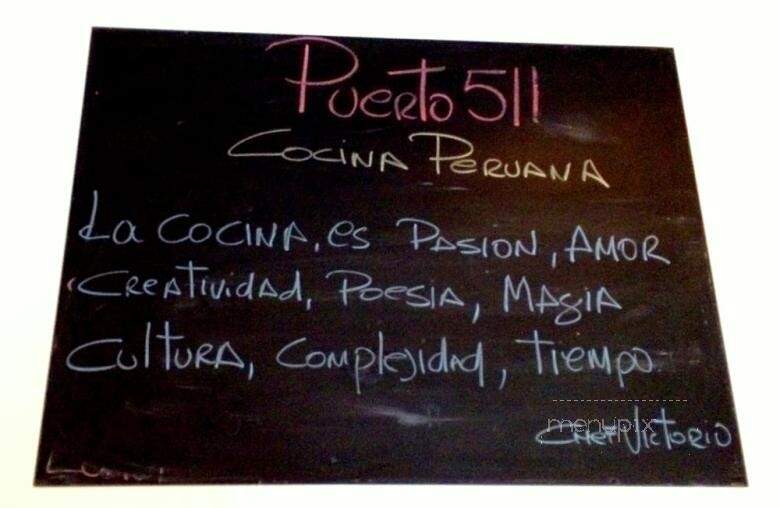 Puerto 511
Cocina Peruana
La cocina, es Pasion, Amor
Creatividad, Poesia, Magia
Cultura, Complejidad, tiempo
menupix
Chef Victorio